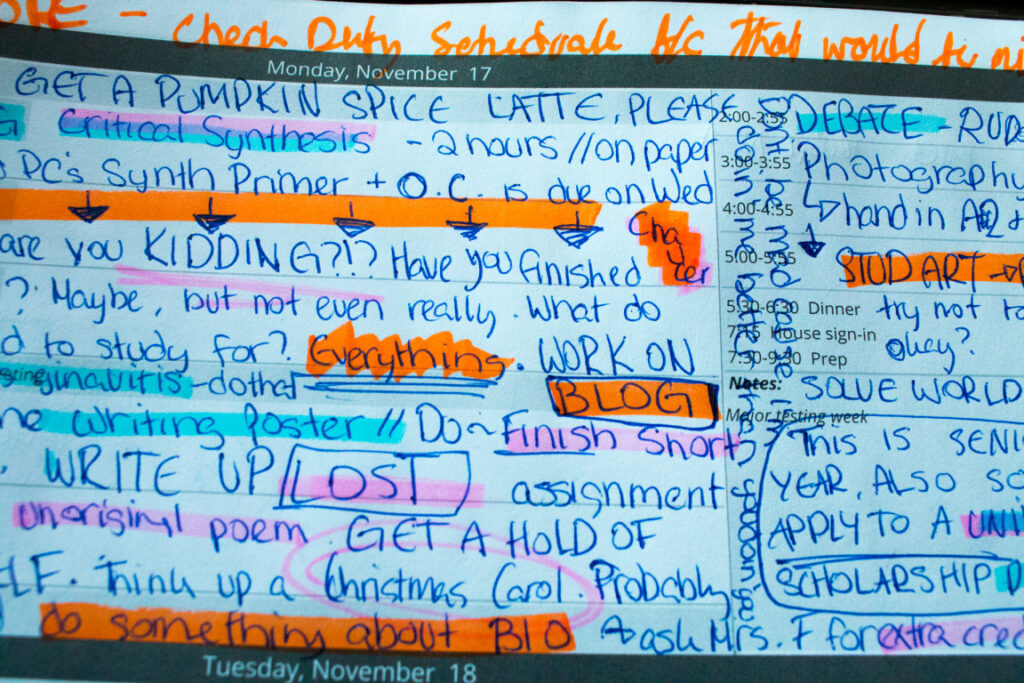 - Check Duty Schedule b/c that would be ni
Monday, November 17
GET A PUMPKIN SPICE LATTE, PLEASE
Critical Synthesis - 2 hours // on paper
PC's Synth Primer + O.C. is due on Wed
are you KIDDING?!? Have you finished
Cha
cer
? Maybe, but not even really. What do
d to study for? Everything. WORK ON
BLOG
- do that
ne writing poster // Do ~ Finish Short
WRITE UP LOST assignment
unoriginal poem. GET A HOLD OF
ELF. Think up a Christmas Carol. Probably
do something about BIO → ask Mrs. F for extra cred
2:00-2:55 DEBATE - RUD
3:00-3:55 Photography
4:00-4:55 hand in A2 &
5:00-5:55 STUD ART →
5:30-6:30 Dinner try not to
7:15 House sign-in okay?
7:30-9:30 Prep
Notes: SOLVE WORLD
Major testing week
THIS IS SENI
YEAR, ALSO SC
APPLY TO A UNI
SCHOLARSHIP D
Tuesday, November 18